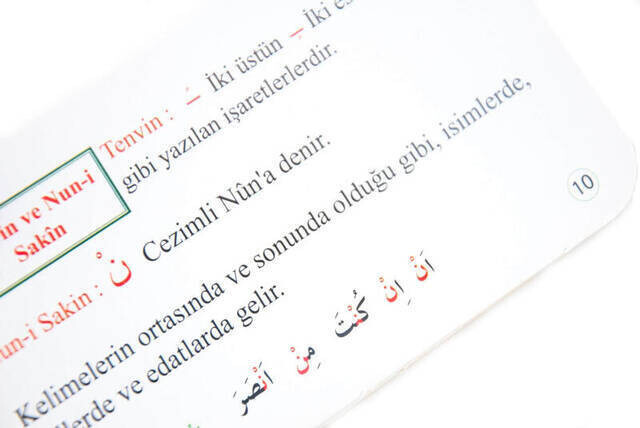 Tenvin : ـً İki üstün ـٍ İki
gibi yazılan işaretlerlerdir.
in ve Nun-i
Sakîn
un-i Sakin : نْ Cezimli Nûn'a denir.
Kelimelerin ortasında ve sonunda olduğu gibi, isimlerde,
llerde ve edatlarda gelir.
اَنْ اِنْ كُنْتَ مِنْ اَنْصَرَ
10